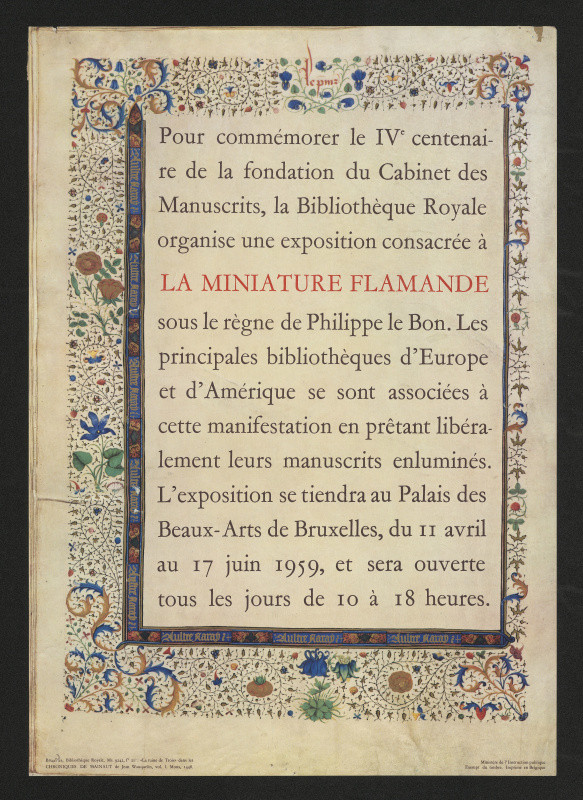 Pour commémorer le IVe centenai-
re de la fondation du Cabinet des
Manuscrits, la Bibliothèque Royale
organise une exposition consacrée à
LA MINIATURE FLAMANDE
sous le règne de Philippe le Bon. Les
principales bibliothèques d'Europe
et d'Amérique se sont associées à
cette manifestation en prêtant libéra-
lement leurs manuscrits enluminés.
L'exposition se tiendra au Palais des
Beaux-Arts de Bruxelles, du 11 avril
au 17 juin 1959, et sera ouverte
tous les jours de 10 à 18 heures.
Bibliothèque Royale, Ms. 9242, «La ruine de Troie» dans les
CHRONIQUES DE HAINAUT de Jean Wauquelin, vol. I. Mons, 1448.
Ministère de l'Instruction publique
Exempt de timbre. Imprimé en Belgique